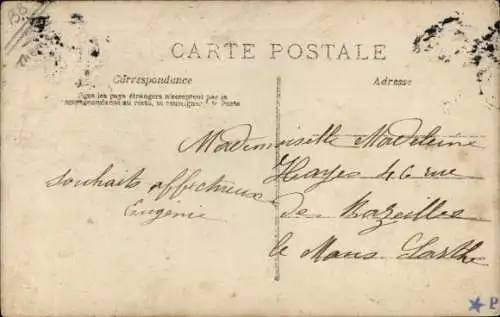 CARTE POSTALE
Correspondance
Adresse
Tous les pays étrangers n'acceptent pas la
correspondance au recto, se renseigner à la Poste
Mademoiselle Madeleine
Hayes 46 rue
de Bazeilles
le Mans Sarthe
souhaits affectueux
Eugénie
P